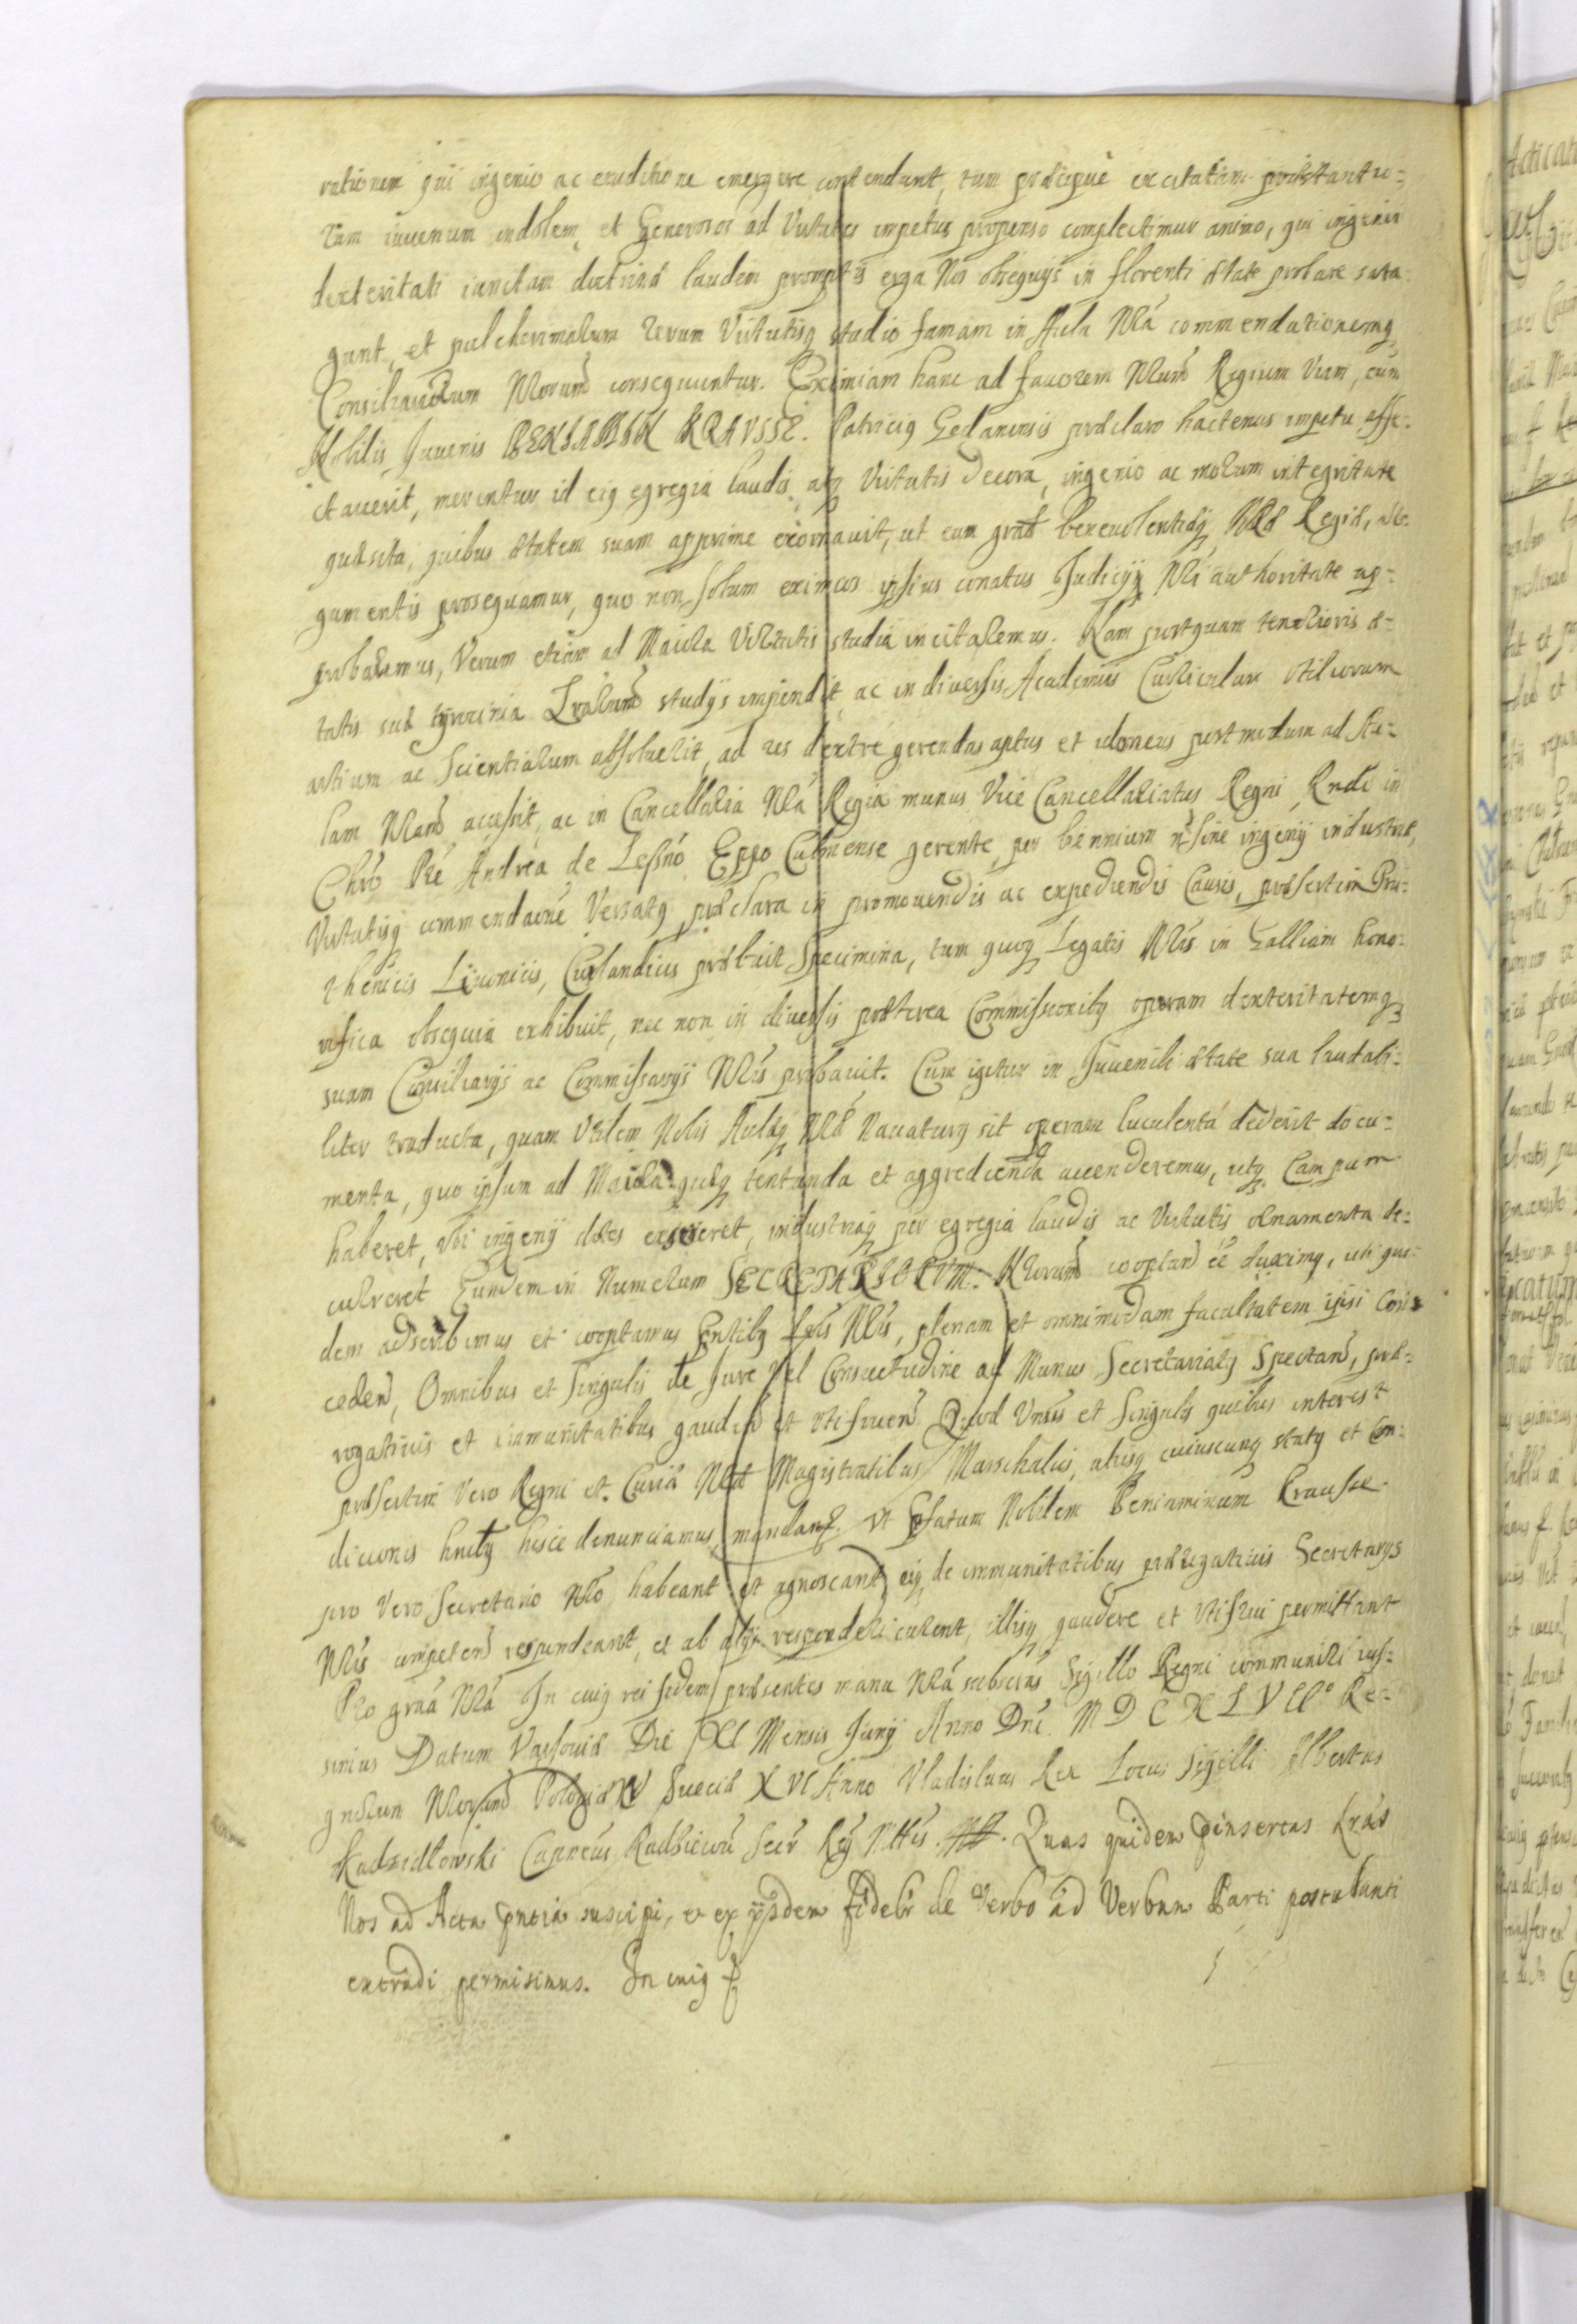 rationem qui ingenio ac eruditione emergere contendunt, tum præcipuè excitatam præstantio=
rum iuuenum indolem, et Generosos ad Virtutes impetus propenso complectimur animo, qui ingenii
dexteritati iunctam doctrinæ laudem promptis erga Nos obsequijs in florenti ætate probare sata
gunt, et pulcherrimarum rerum Virtutisq studio famam in Aula Nrã commendationemq
Consiliariorum Nrorum consequuntur. Eximiam hanc ad fauorem Nrum Regium Viam, cum
Nobilis Juuenis BENIAMIN KRAVSSE. Patricig Gedanensis præclaro hactenus impetu affe=
ctauerit, merentur id eig egregia laudis, atq Virtutis decora, ingenio ac morum integritate
quæsita, quibus ætatem suam apprime exornauit, ut eum grat beneuolentiæq Nræ Regiæ, au=
gumentis prosequamur, quo non solum eximios ipsius conatus Judicij Nri authoritate ap=
probaremus, Verum etiam ad Maiora Virtutis studia incitaremus. Nam postquam tenerioris æ=
tatis sub tyrocinia Lrarum studijs impendit, ac in diuersis Academijs Curriculum Vtiliorum
artium ac Scientiarum absoluerit, ad res dextre gerendas aptus et idoneus postmodum ad Au=
lam Nram accessit, ac in Cancellaria Nrã Regia munus Vice Cancellariatus Regni Rndi in
Chro Pre Andrea de Lessno Eppo Culmense gerente, per biennium ñ sine ingenij industriæ,
Virtutisq commendaone Versatg præclara in promouendis ac expediendis Causis, præsertim Pru=
thenicis Liuonicis, Curlandicis præbuit Specimina, tum quoq Legatis Nris in Galliam hono=
rifica obsequia exhibuit, nec non in diuersis præterea Commissionibg operam dexteritatemq
suam Consiliarijs ac Commissarijs Nris probauit. Cum igitur in Juuenili ætate sua laudabi=
liter traducta, quam Vtilem Nobis Aulæq Nræ Nauaturg sit operam luculenta dederit docu=
menta, quo ipsum ad Maiora quæq tentanda et aggredienda accenderemus, utq Campum
haberet, Vbi ingenij dotes exereret, industriaq per egregia laudis ac Virtutis ornamenta de=
curreret Eundem in Numerum SECRETARIORVM. Nrorum cooptand ee duximg, uti qui=
dem adscribimus et cooptamus Pntibg Lris Nris, plenam et omnimodam facultatem ipsi Con=
ceden, Omnibus et Singulis de Jure Vel Consuetudine ad Munus Secretariatg Spectan, præ=
rogatiuis et immunitatibus gauden et Vtifruen Quod Vnis et Singulis quibus interest
præsertim Vero Regni et Curiæ Nræ Magistratibus Marschalcis, alijsq cuiuscunq statg et Con=
dicionis hnitg hisce denunciamus, mandantes. Vt Pfatum Nobilem Beniaminum Krausse
pro Vero Secretario Nro habeant et agnoscant, eiq de immunitatibus prærogatiuis Secretarijs
Nris competen respondeant, et ab alijs responderi curent, illisq gaudere et Vtifrui permittant
Pro graã Nrã In cuig rei fidem præsentes manu Nrã subscrias Sigillo Regni communiri ius=
simus Datum Varsouiæ Die XI Mensis Junij Anno Dni M D C X L V IIº Re=
gnorum Nrorum Poloniæ XV Sueciæ XVI Anno Vladislaus Rex Locus Sigilli Albertus
Kadzidlowski Cannecus Radzieiou Secr Reg Mttis Quas quidem pinsertas Lras
Nos ad Acta pntia suscipi, & ex ijsdem fideli de Verbo ad Verbum Parti postulanti
extradi permisimus. In cuig &